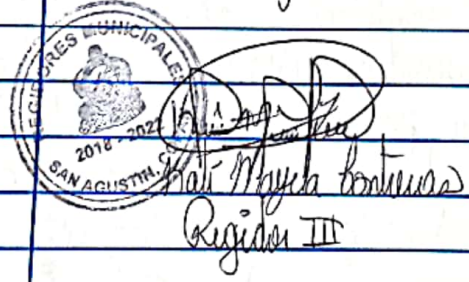 REGIDORES MUNICIPALES
2018 - 202
SAN AGUSTIN, C
Kati Mayela Contreras
Regidor III